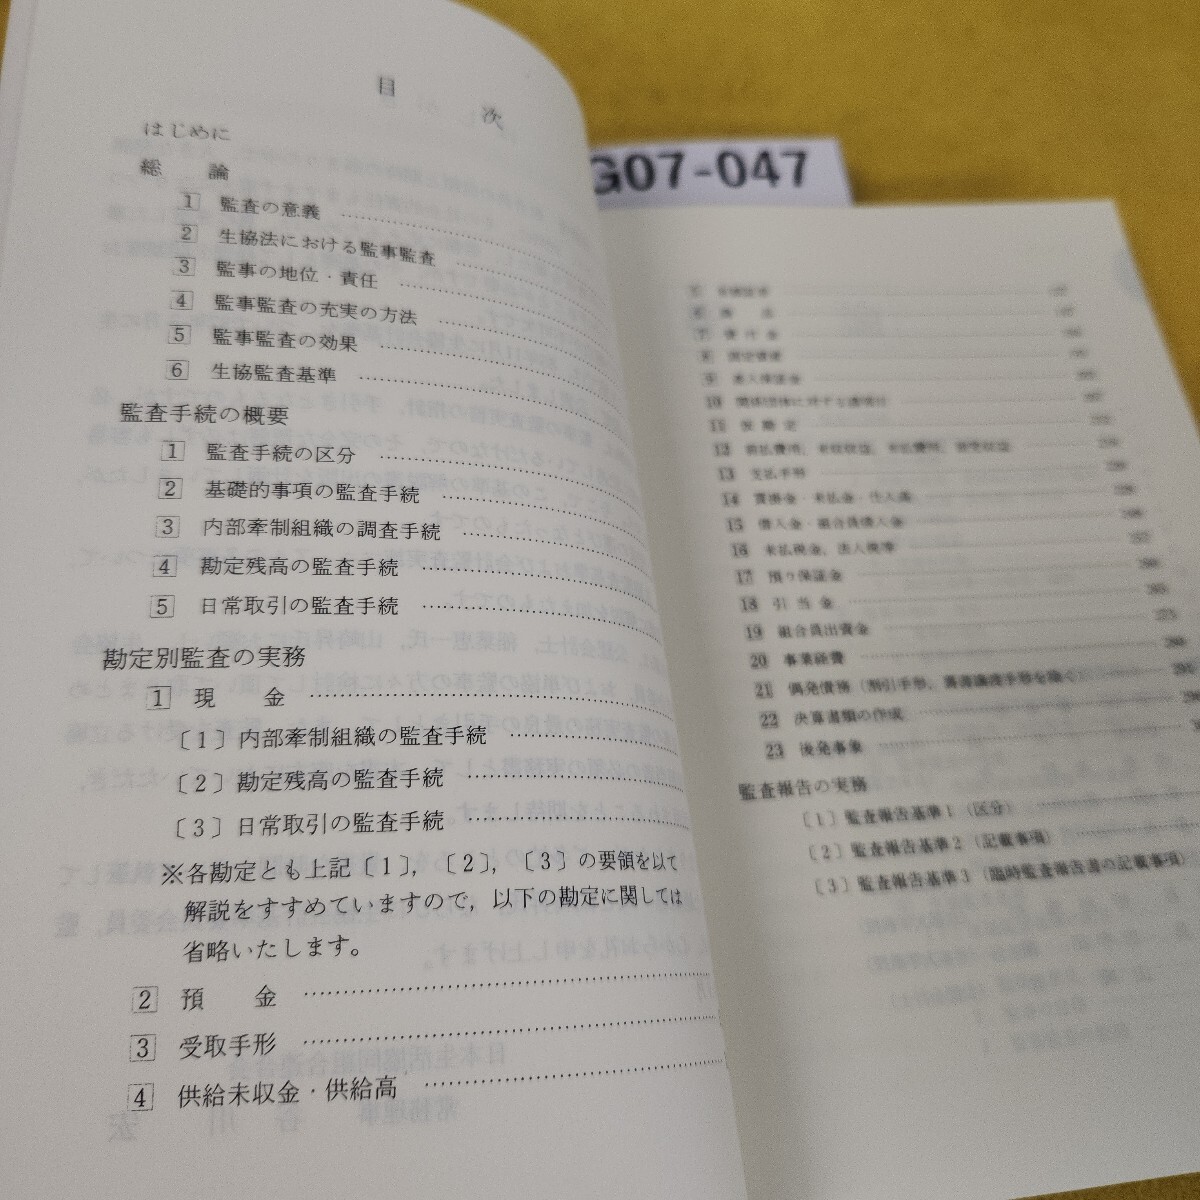 目次
はじめに
総論
1 監査の意義
2 生協法における監事監査
3 監事の地位・責任
4 監事監査の充実の方法
5 監事監査の効果
6 生協監査基準
監査手続の概要
1 監査手続の区分
2 基礎的事項の監査手続
3 内部牽制組織の調査手続
4 勘定残高の監査手続
5 日常取引の監査手続
勘定別監査の実務
1 現金
〔1〕内部牽制組織の監査手続
〔2〕勘定残高の監査手続
〔3〕日常取引の監査手続
※各勘定とも上記〔1〕,〔2〕,〔3〕の要領を以て
解説をすすめていますので,以下の勘定に関しては
省略いたします。
2 預金
3 受取手形
4 供給未収金・供給高
G07-047
7 貸付金
8 固定資産
9 差入保証金
10 関係団体に対する
11 仮勘定
12 前払費用,未収収益,未払費用,前受収益
13 支払手形
14 買掛金・未払金・仕入高
15 借入金・組合員借入金
16 未払税金,法人税等
17 預り保証金
18 引当金
19 組合員出資金
20 事業経費
21 偶発債務(割引手形,裏書譲渡手形を除く)
22 決算書類の作成
23 後発事象
監査報告の実務
〔1〕監査報告基準1(区分)
〔2〕監査報告基準2(記載事項)
〔3〕監査報告基準3(臨時監査報告書の記載事項)